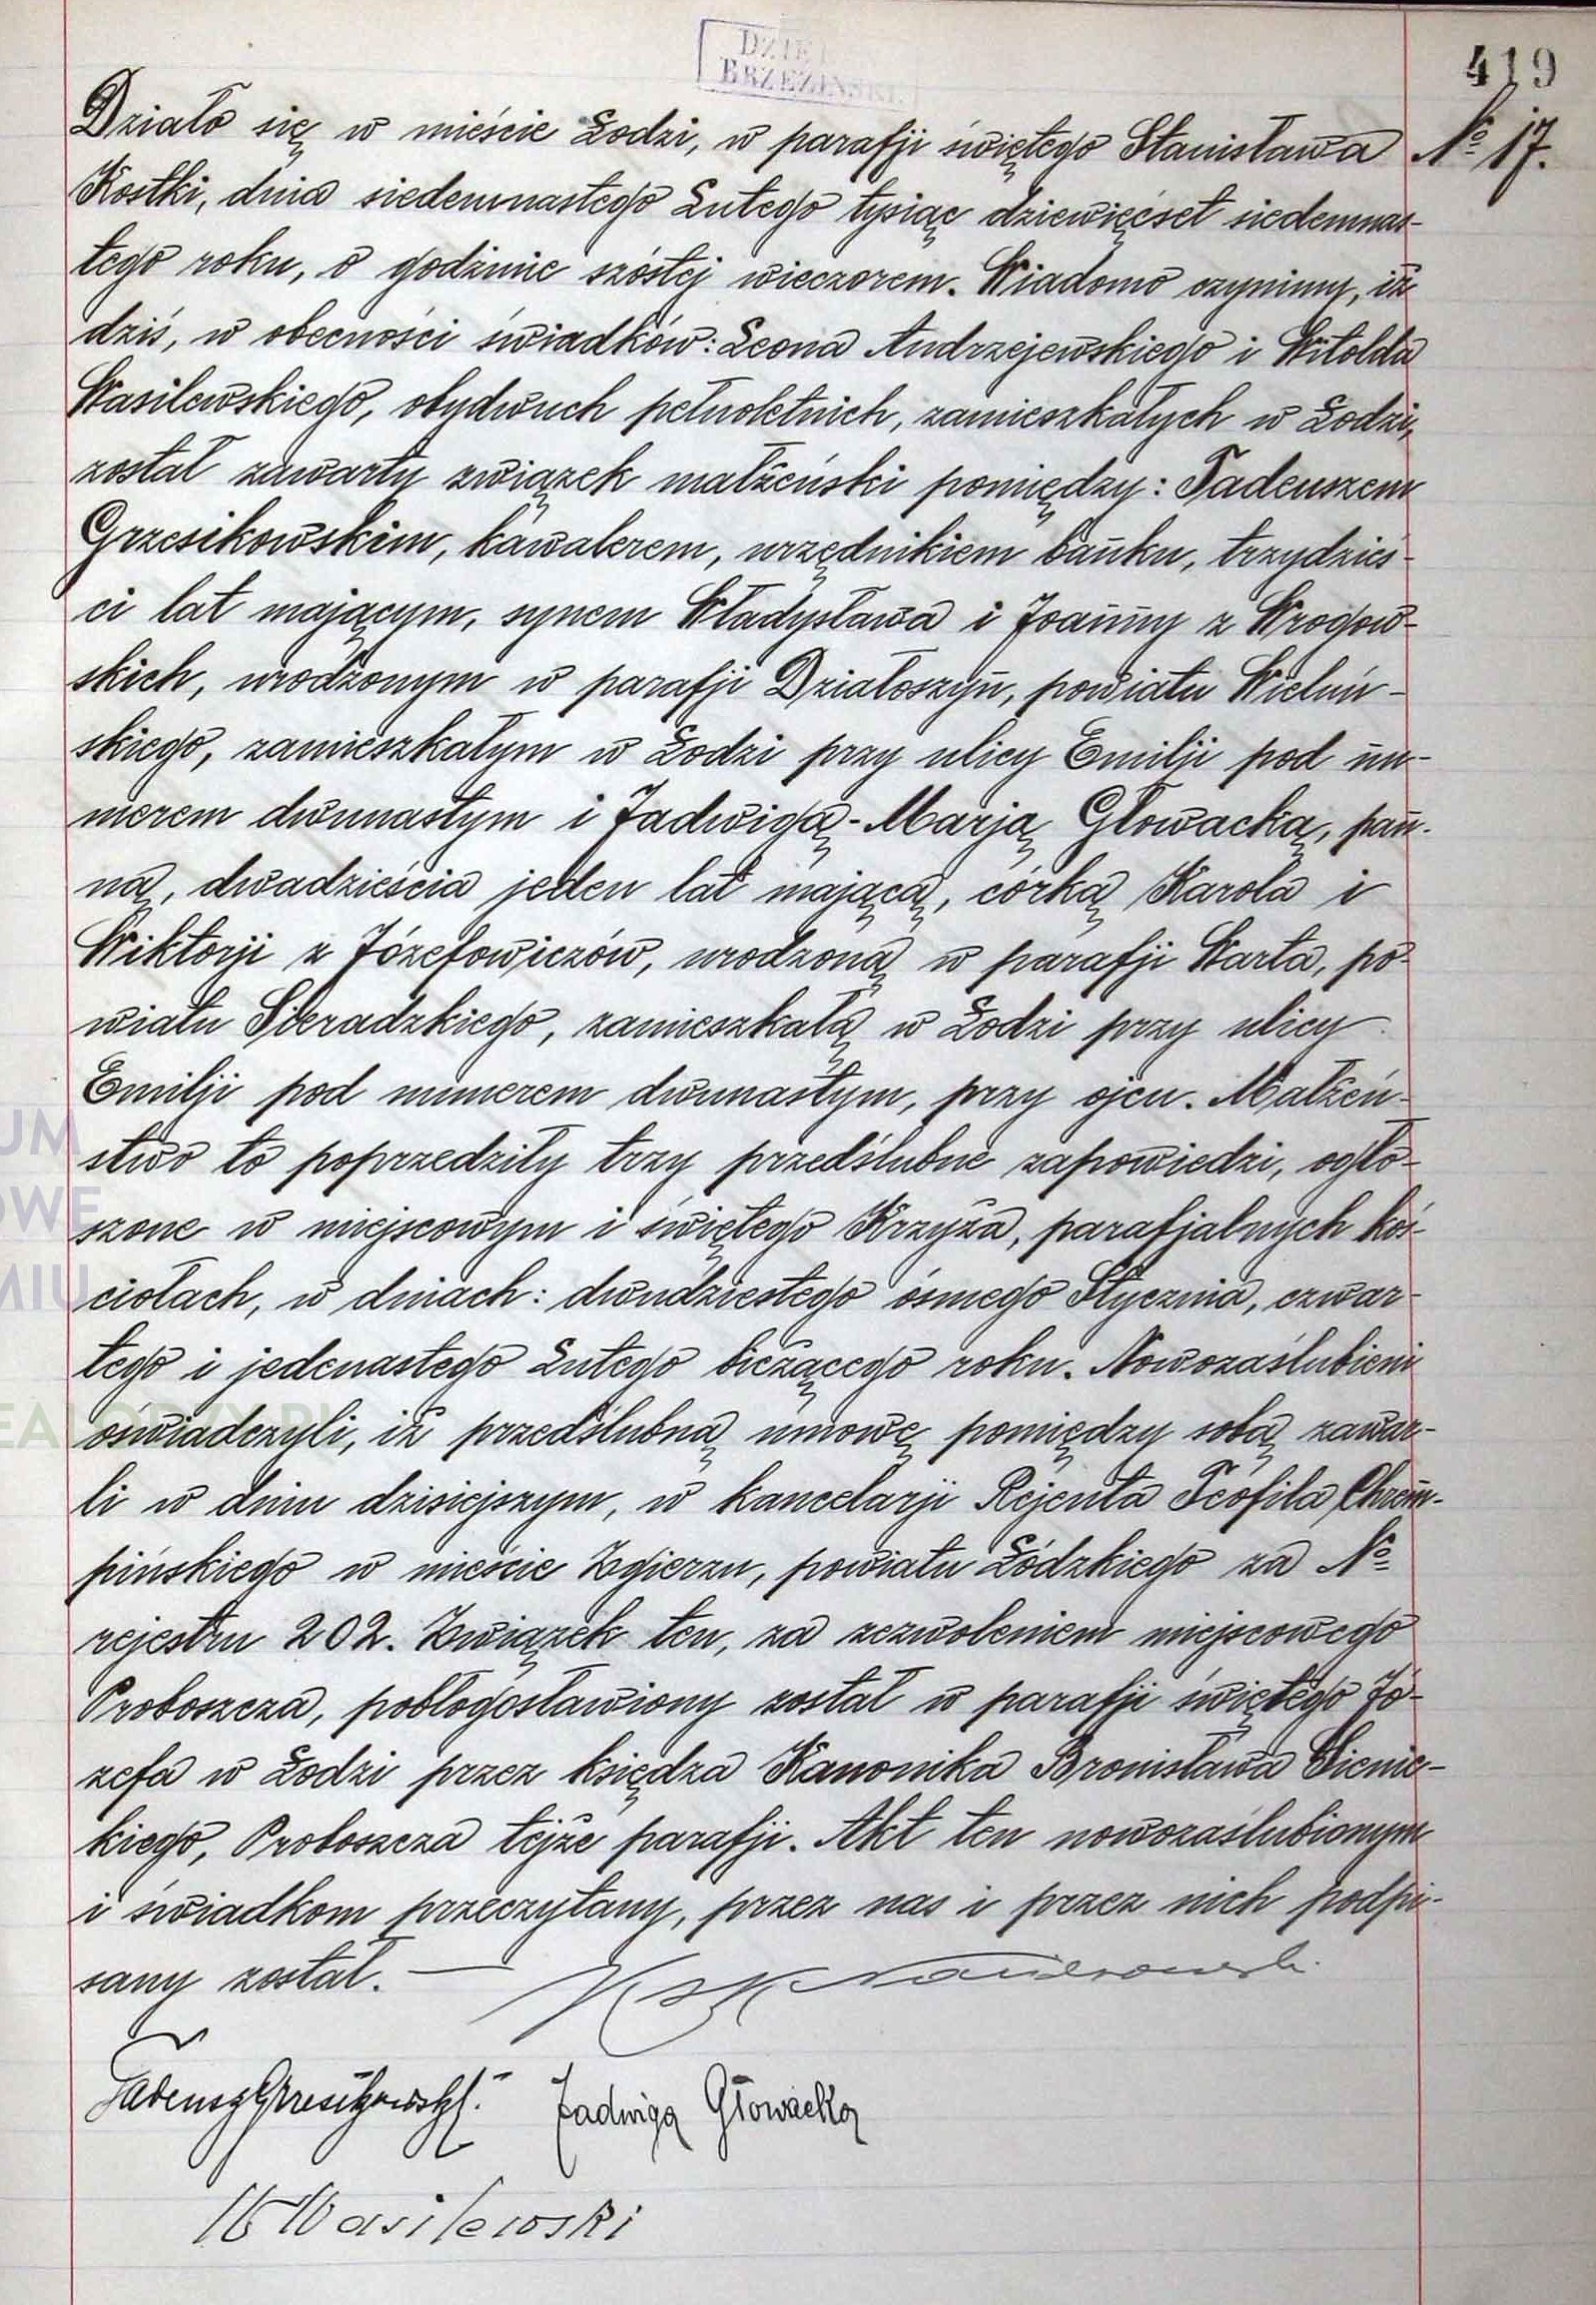 DZIE
BRZEZIŃSKI
419
Działo się w mieście Łodzi, w parafji świętego Stanisława
№ 17.
Kostki, dnia siedemnastego Lutego tysiąc dziewięćset siedemnas-
tego roku, o godzinie szóstej wieczorem. Wiadomo czynimy, iż
dziś, w obecności świadków: Leona Andrzejewskiego i Witolda
Wasilewskiego, obydwuch pełnoletnich, zamieszkałych w Łodzi,
został zawarty związek małżeński pomiędzy: Tadeuszem
Grzesikowskim, kawalerem, urzędnikiem banku, trzydzieś-
ci lat mającym, synem Władysława i Joanny z Wrogow-
skich, urodzonym w parafji Działoszyn, powiatu Wieluń-
skiego, zamieszkałym w Łodzi przy ulicy Emilji pod nu-
merem dwunastym i Jadwigą-Marją Głowacką, pan-
ną, dwadzieścia jeden lat mającą, córką Karola i
Wiktorji z Józefowiczów, urodzoną w parafji Warta, po-
wiatu Sieradzkiego, zamieszkałą w Łodzi przy ulicy
Emilji pod numerem dwunastym, przy ojcu. Małżeń-
stwo to poprzedziły trzy przedślubne zapowiedzi, ogło-
szone w miejscowym i świętego Krzyża, parafjalnych koś-
ciołach, w dniach: dwudziestego ósmego Stycznia, czwar-
tego i jedenastego Lutego bieżącego roku. Nowozaślubieni
oświadczyli, iż przedślubną umowę pomiędzy sobą zawar-
li w dniu dzisiejszym, w kancelarji Rejenta Teofila Chrem-
pińskiego w mieście Zgierzu, powiatu Łódzkiego za №
rejestru 202. Związek ten, za zezwoleniem miejscowego
Proboszcza, pobłogosławiony został w parafji świętego Jó-
zefa w Łodzi przez księdza Kanonika Bronisława Sienic-
kiego, Proboszcza tejże parafji. Akt ten nowozaślubionym
i świadkom przeczytany, przez nas i przez nich podpi-
sany został. —
Tadeusz Grzesikowski. Jadwiga Głowacka
W Wasilewski
UM
OWE
MIU